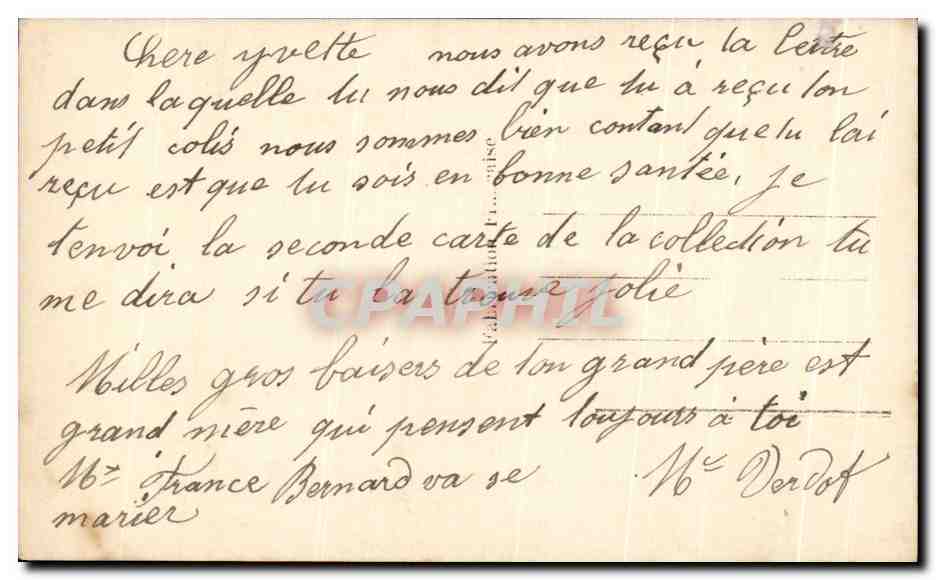 Chere yvette nous avons reçu ta lettre
dans laquelle tu nous dit que tu à reçu ton
petit colis nous sommes bien contant que tu lai
reçu est que tu sois en bonne santée, je
tenvoi la seconde carte de la collection tu
me dira si tu la trouve jolie
Milles gros baisers de ton grand père est
grand mère qui pensent toujours à toi
France Bernard va se
marier
Verdot
CPAPHIL